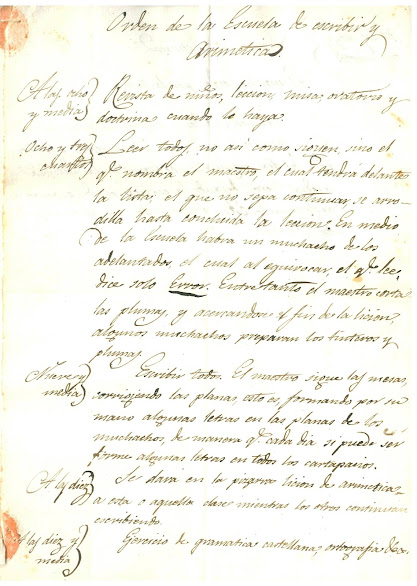 Orden de la Escuela de escribir y
Arimetica
A las ocho
y media
Revista de niños, leccion, misa, oratorio y
doctrina cuando lo haya.
Ocho y tres
cuartos
Leer todos, no asi como siguen, sino el
q.e nombra el maestro, el cual tendrá delante
la lista; el que no sepa continuar, se arro-
dilla hasta concluida la leccion. En medio
de la Escuela habra un muchacho de los
adelantados, el cual al equivocar, el q.e lee,
dice solo Error. Entretanto el maestro corta
las plumas, y acercandose el fin de la licion,
algunos muchachos preparan los tinteros y
plumas.
Nueve y
media
Escribir todos. El maestro sigue las mesas,
corrigiendo las planas, esto es formando por su
mano algunas letras en las planas de los
muchachos, de manera q.e cada dia si puede ser
forme algunas letras en todos los cartapacios.
A las diez
Se dará en la pizarra licion de arimetica
a esta o aquella clase mientras los otros continuan
escribiendo.
A las diez y
media
Egercicio de gramatica castellana, ortografia &c.